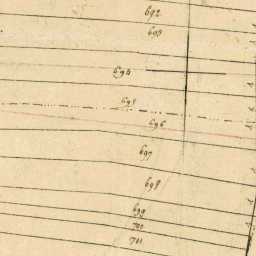 692
693
694
695
696
697
698
699
700
701